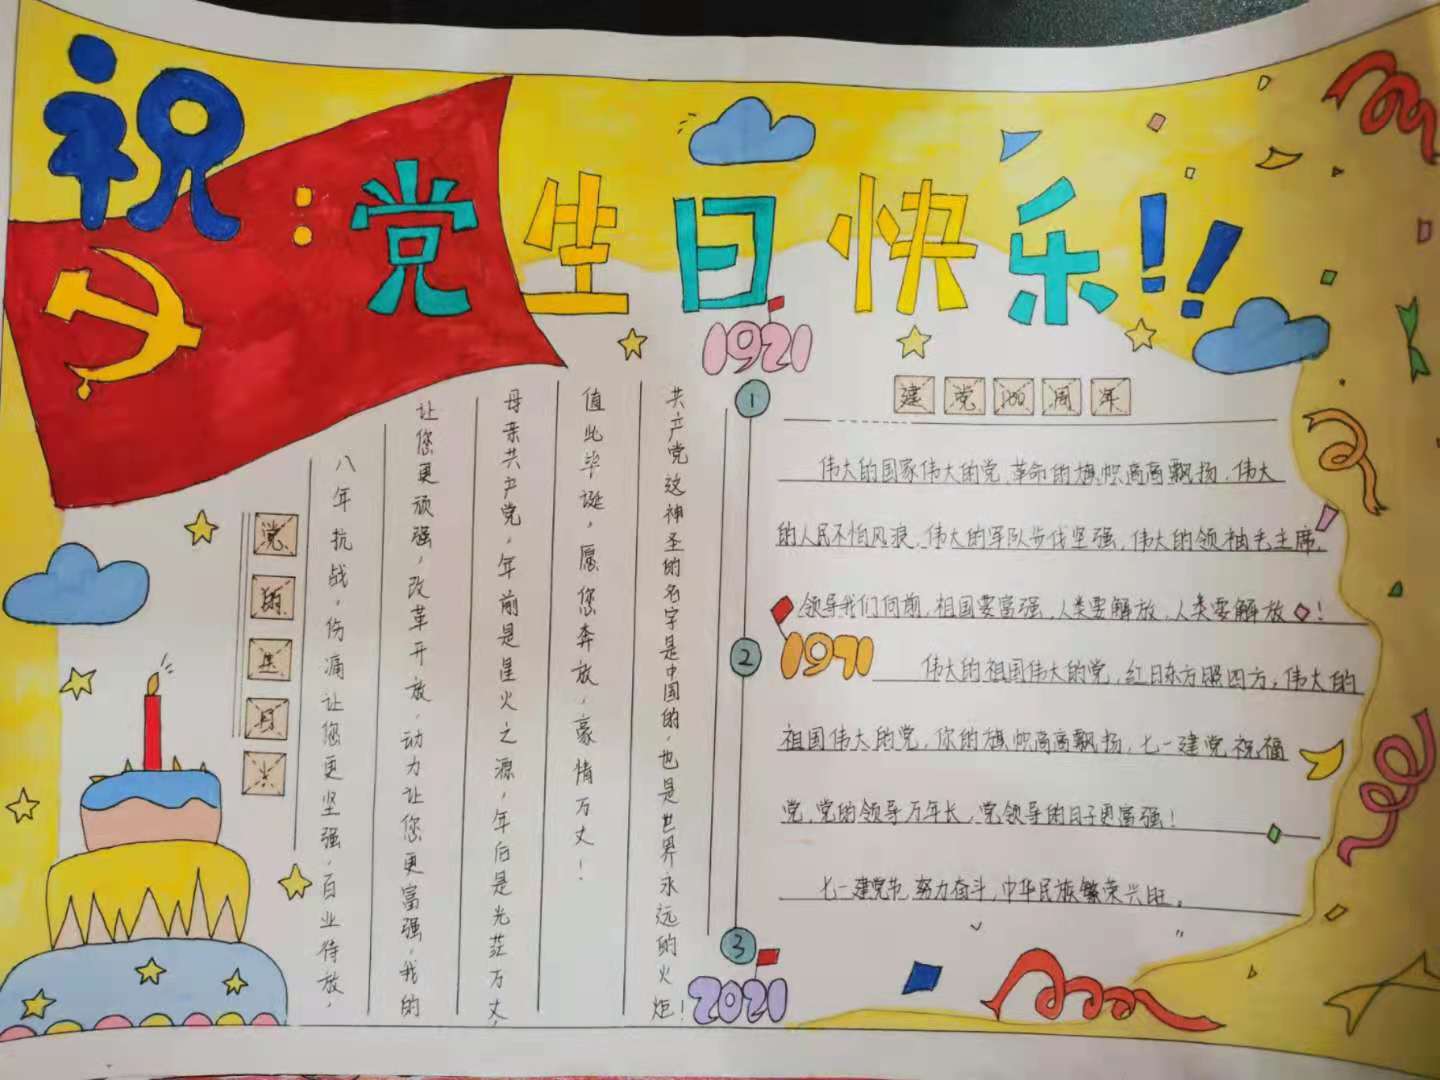 祝：党生日快乐!!
党的生日
八年抗战，伤痛让您更坚强，百业待放，
让您更顽强，改革开放，动力让您更富强，我的
母亲共产党，年前是星火之源，年后是光茫万丈，
值此华诞，愿您奔放，豪情万丈！
共产党这神圣的名字是中国的，也是世界永远的火炬！
1921
1
2
1971
3
2021
建党100周年
伟大的国家伟大的党，革命的旗帜高高飘扬，伟大
的人民不怕风浪，伟大的军队步伐坚强，伟大的领袖毛主席，
领导我们向前，祖国要富强，人类要解放，人类要解放！
伟大的祖国伟大的党，红日东方照四方，伟大的
祖国伟大的党，你的旗帜高高飘扬，七一建党祝福
党，党的领导万年长，党领导的日子更富强！
七一建党节，努力奋斗，中华民族繁荣兴旺。